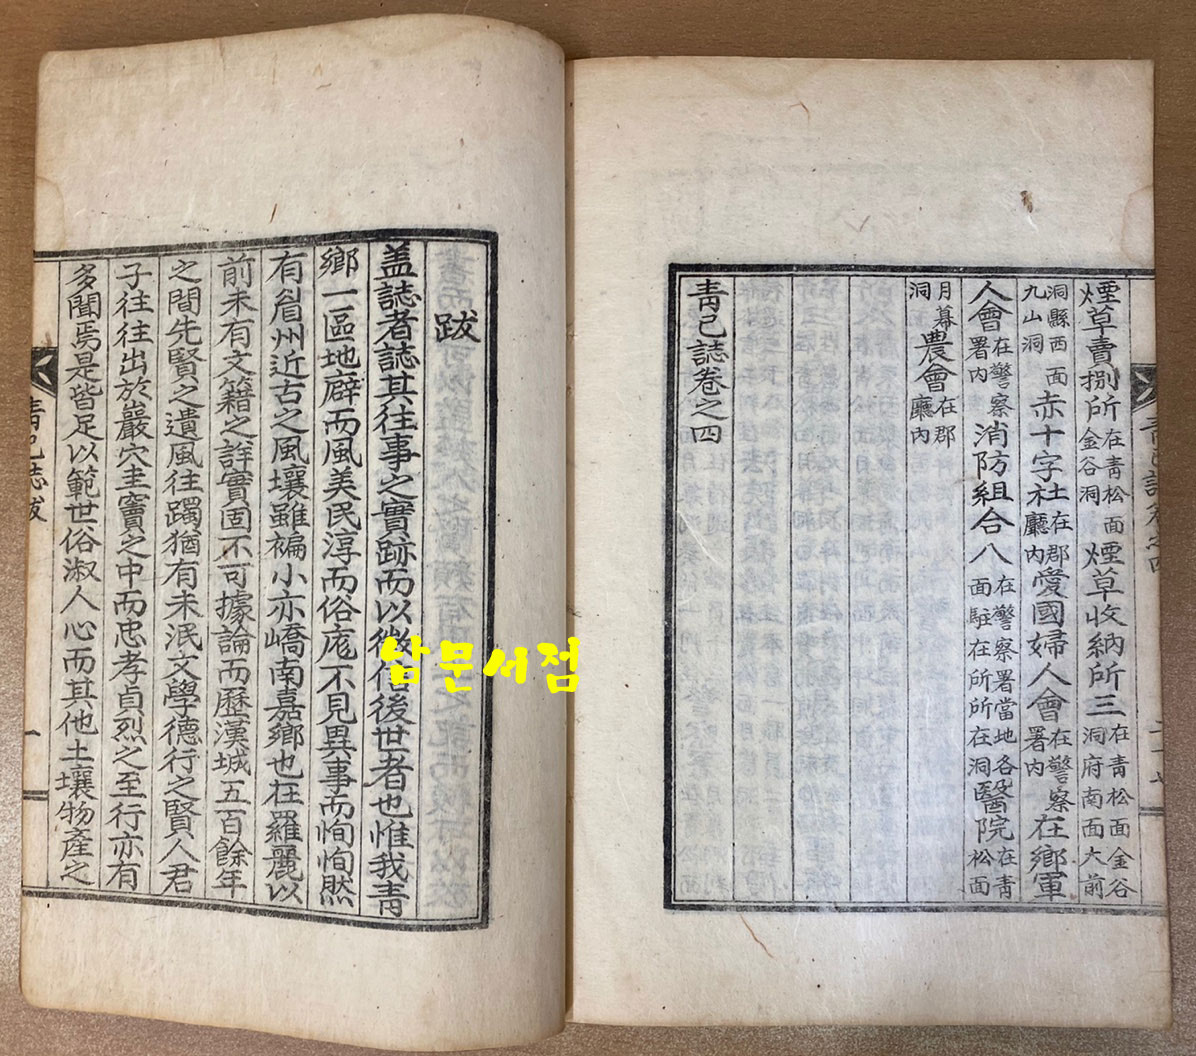 煙草賣捌所在靑松面金谷洞煙草收納所三在靑松面金谷洞府南面大前
洞縣西面九山洞赤十字社在郡廳內愛國婦人會在警察署內在鄕軍
人會在警察署內消防組合八在警察署當地各面駐在所所在洞醫院在靑松面
月幕洞農會在郡廳內
靑己誌卷之四
跋
盖誌者誌其往事之實跡而以徵信後世者也惟我靑
鄕一區地僻而風美民淳而俗庬不見異事而恂恂然
有眉州近古之風壤雖褊小亦嶠南嘉鄕也在羅麗以
前未有文籍之詳實固不可據論而歷漢城五百餘年
之間先賢之遺風往躅猶有未泯文學德行之賢人君
子往往出於巖穴圭竇之中而忠孝貞烈之至行亦有
多聞焉是皆足以範世俗淑人心而其他土壤物產之
靑己誌跋 一
남문서점